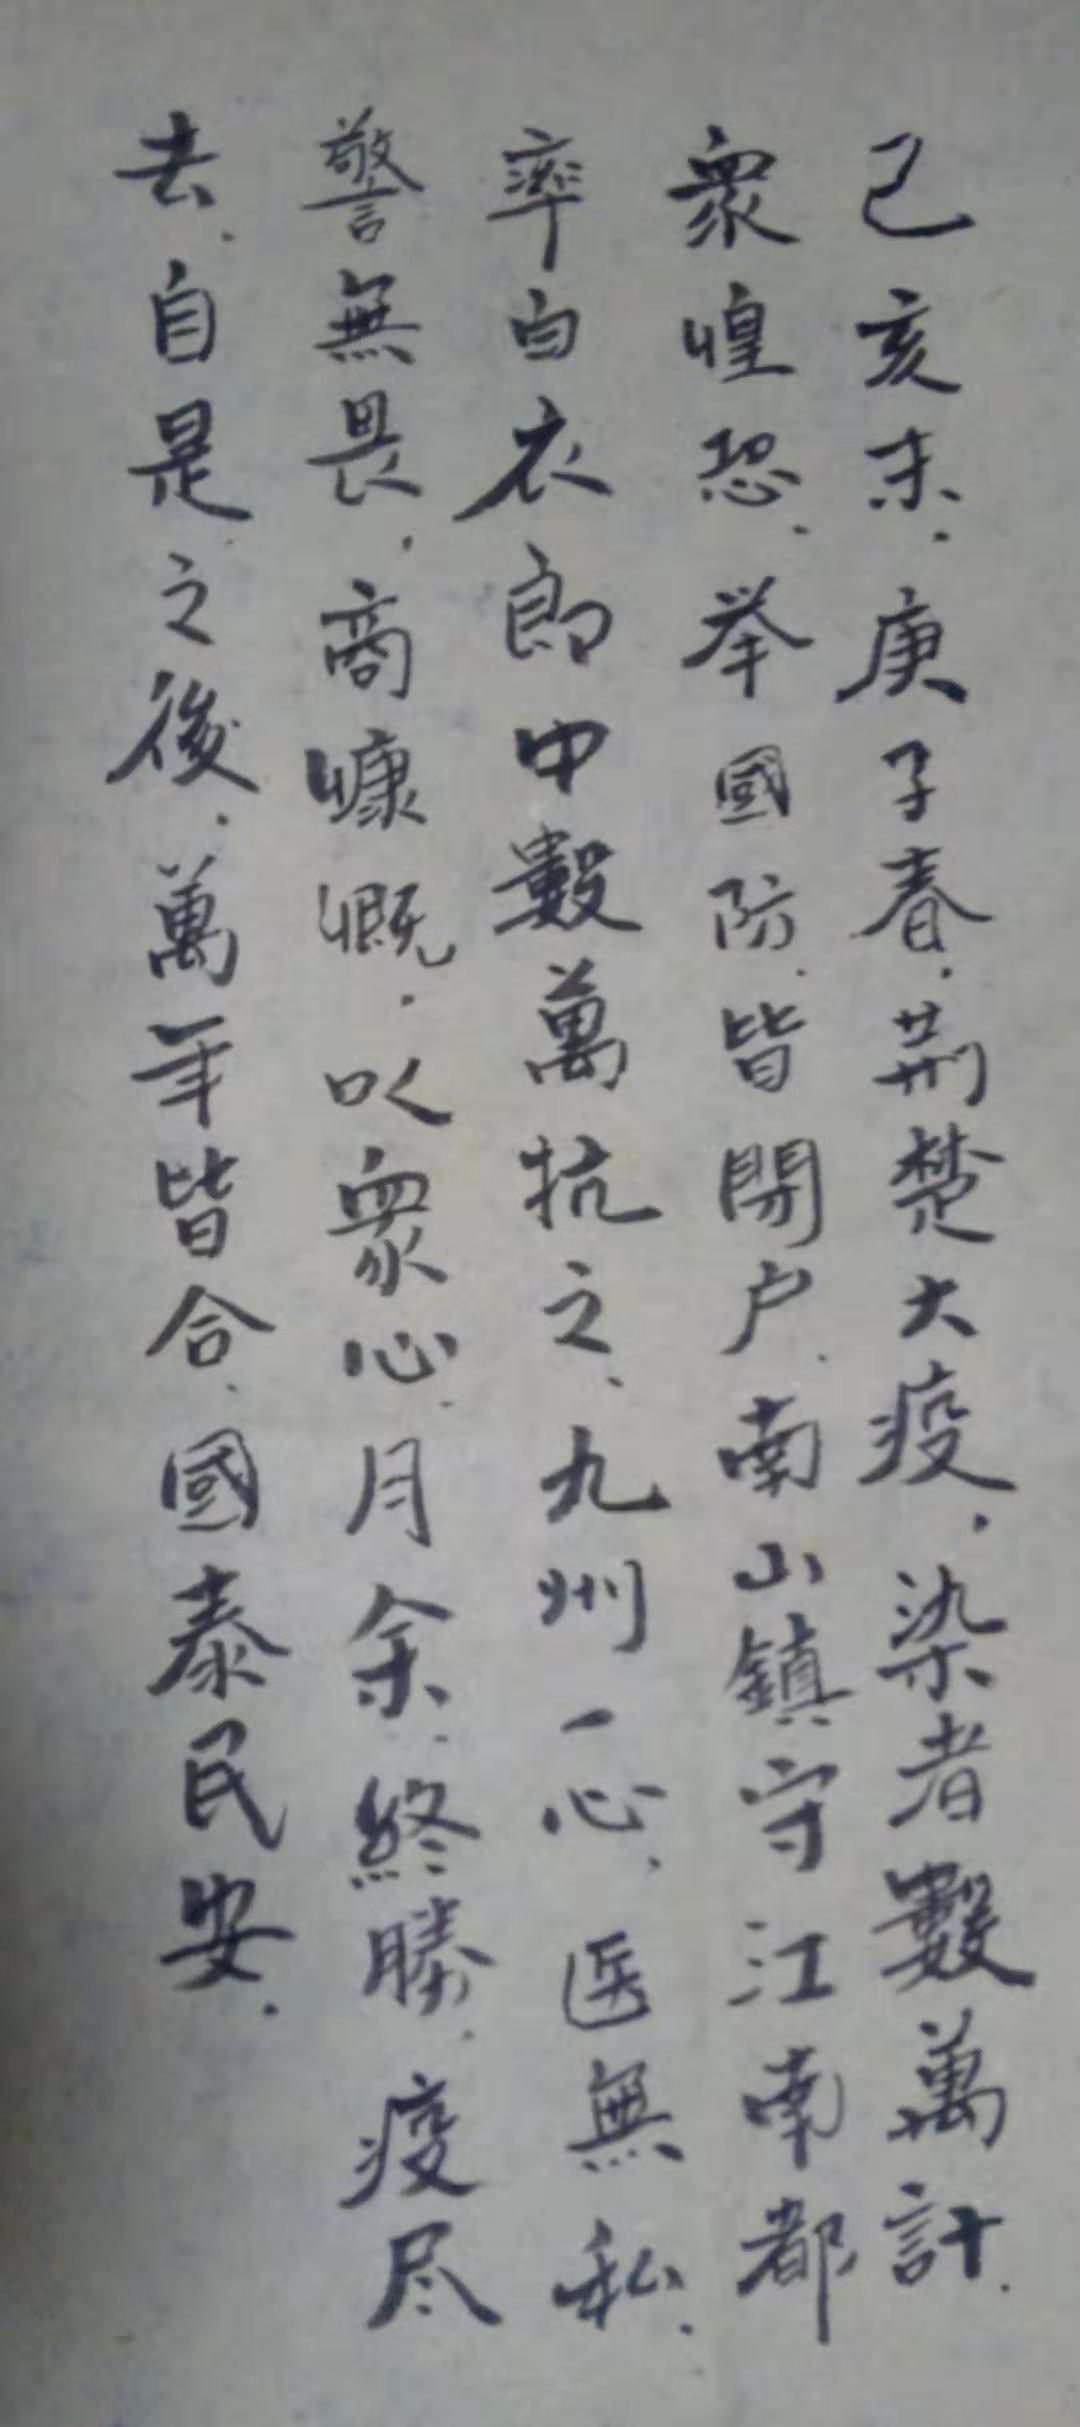 己亥末.庚子春.荆楚大疫.染者數萬計.
衆惶恐.举國防.皆閉户.南山鎮守江南都
率白衣郎中數萬抗之.九州一心.医無私.
警無畏.商慷慨.以衆心.月余.終勝.疫尽
去.自是之後.萬年皆合.國泰民安.